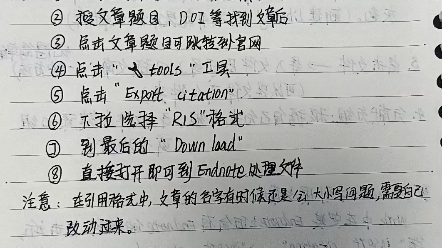 ② 按文章题目、DOI等找到文章后
③ 点击文章题目可跳转到官网
④ 点击" tools "工具
⑤ 点击" Export citation"
⑥ 下拉选择"RIS"格式
⑦ 到最后的" Down load"
⑧ 直接打开即可到Endnote处理文件
注意: 在引用格式中,文章的名字有时候还是会大小写问题,需要自己
改动过来.